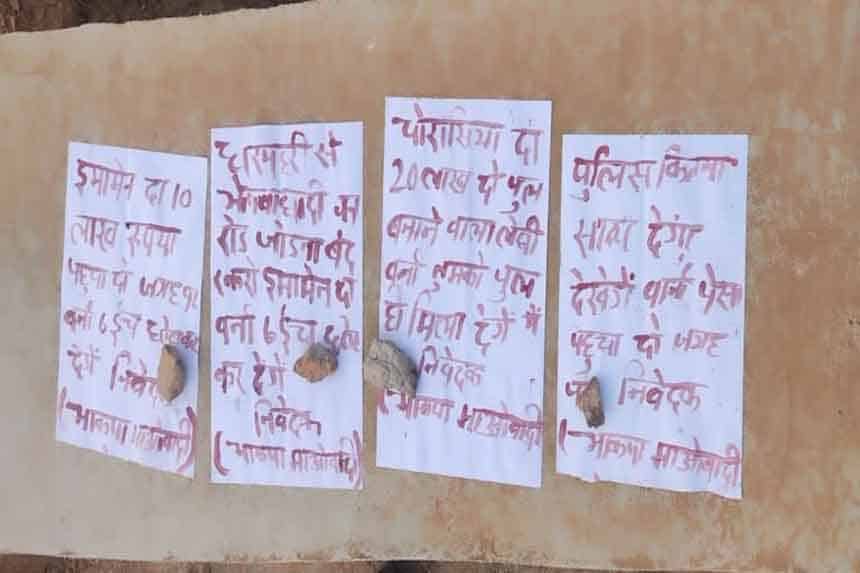 इमामेन दो 10
लाख रूपया
पहुचा दो जगह
वर्ना 6 इंच
देगें निवेदक
(भाकपा माओवादी)
से
रोड जोडना बंद
करो इमामेन दो
वर्ना 6 इंच छोटा
कर देगें
निवेदक
(भाकपा माओवादी)
चोरासिया दो
20 लाख दो पुल
बनाने वाला लेवी
वर्ना तुमको पुल
मिला देगें में
निवेदक
(भाकपा माओवादी
पुलिस कितना
साथ देगा
देखेगें वर्ना पेसा
पहुचा दो जगह
निवेदक
(भाकपा माओवादी